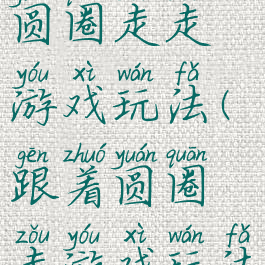 圆圈走走
yóu xì wán fǎ
游戏玩法(
gēn zhuó yuán quān
跟着圆圈
zǒu yóu xì wán fǎ
走游戏玩法